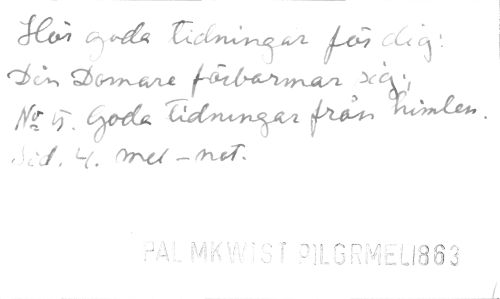 Hör goda tidningar för dig:
Din Domare förbarmar sig;
No 5. Goda tidningar från himlen.
Sid. 4. mel-not.
PALMKWIST PILGRMEL1863